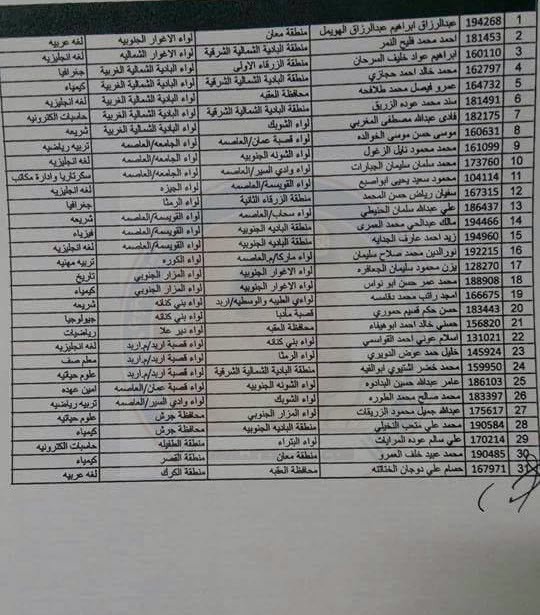 1 194268 عبدالرزاق ابراهيم عبدالرزاق الهويمل منطقة معان لواء الاغوار الجنوبيه لغه عربيه
2 181453 احمد محمد فليح النمر منطقة البادية الشمالية الشرقية لواء الاغوار الشماليه لغه انجليزيه
3 160110 ابراهيم عواد خليف السرحان منطقة الزرقاء الاولى لواء البادية الشمالية الغربية جغرافيا
4 162797 محمد خالد احمد حجازي منطقة البادية الشمالية الشرقية لواء البادية الشمالية الغربية كيمياء
5 164732 عمرو فيصل محمد طلافحه محافظة العقبه لواء البادية الشمالية الغربية لغه انجليزيه
6 181491 سند محمد عوده الزريق منطقة البادية الشمالية الشرقية لواء البادية الشمالية الغربية حاسبات الكترونيه
7 182175 فادي عبدالله مصطفى المغربي لواء الشوبك لواء البادية الشمالية الغربية شريعه
8 160631 موسى حسن موسى الخوالده لواء قصبة عمان/العاصمه لواء الجامعه/العاصمه تربيه رياضيه
9 161099 محمد محمود نايل الزغول لواء الشونه الجنوبيه لواء الجامعه/العاصمه لغه انجليزيه
10 173760 محمد سلمان سليمان الجبارات لواء وادي السير/العاصمه لواء الجامعه/العاصمه سكرتاريا وادارة مكاتب
11 104114 محمود سعيد يحيى ابواصبع لواء القويسمة/العاصمه لواء الجيزه لغه انجليزيه
12 167315 سفيان رياض حسن المحمد منطقة الزرقاء الثانية لواء الرمثا جغرافيا
13 186437 علي عبدالله سلمان الحنيطي لواء سحاب/العاصمه لواء القويسمة/العاصمه شريعه
14 194466 مالك عبدالحي محمد العمري منطقة البادية الجنوبيه لواء القويسمة/العاصمه فيزياء
15 194960 زيد احمد عارف الجدايه منطقة البادية الجنوبيه لواء القويسمة/العاصمه لغه انجليزيه
16 192215 نورالدين محمد صلاح سليمان لواء ماركا/م.العاصمه لواء الكوره تربيه مهنيه
17 128270 يزن محمود سليمان الجعافره لواء الاغوار الجنوبيه لواء المزار الجنوبي تاريخ
18 188908 محمد عمر حسن ابو نواس لواء الاغوار الجنوبيه لواء المزار الجنوبي كيمياء
19 166675 امجد راتب محمد لواءي الطيبه والوسطيه/اربد لواء بني كنانه شريعه
20 183443 حسن حكم قسيم حموري قصبة مادبا لواء بني كنانه جيولوجيا
21 156820 حسني خالد احمد ابوهيفاء محافظة العقبه لواء دير علا رياضيات
22 131021 اسلام عوني احمد القواسمي لواء بني كنانه لواء قصبة اربد/م.اربد لغه انجليزيه
23 145924 خليل حمد عوض الدويري لواء الرمثا لواء قصبة اربد/م.اربد معلم صف
24 159950 محمد خضر الشتيوي ابوالفيه منطقة البادية الشمالية الشرقية لواء قصبة اربد/م.اربد علوم حياتيه
25 186103 عامر عبدالله حسين البدادوه لواء الشونه الجنوبيه لواء قصبة عمان/العاصمه امين عهده
26 183397 محمد صالح محمد الطوره لواء الشوبك لواء وادي السير/العاصمه تربيه رياضيه
27 175617 عبدالله جميل محمود الزريقات لواء المزار الجنوبي محافظة جرش علوم حياتيه
28 190584 محمد علي متعب النخيلي منطقة البادية الجنوبيه محافظة جرش كيمياء
29 170214 علي سالم عوده المرايات لواء البتراء منطقة الطفيله حاسبات الكترونيه
30 190485 محمد عبيد خلف العمرو منطقة معان منطقة القصر كيمياء
31 167971 حسام علي دوجان الختاتنه محافظة العقبه منطقة الكرك لغه عربيه